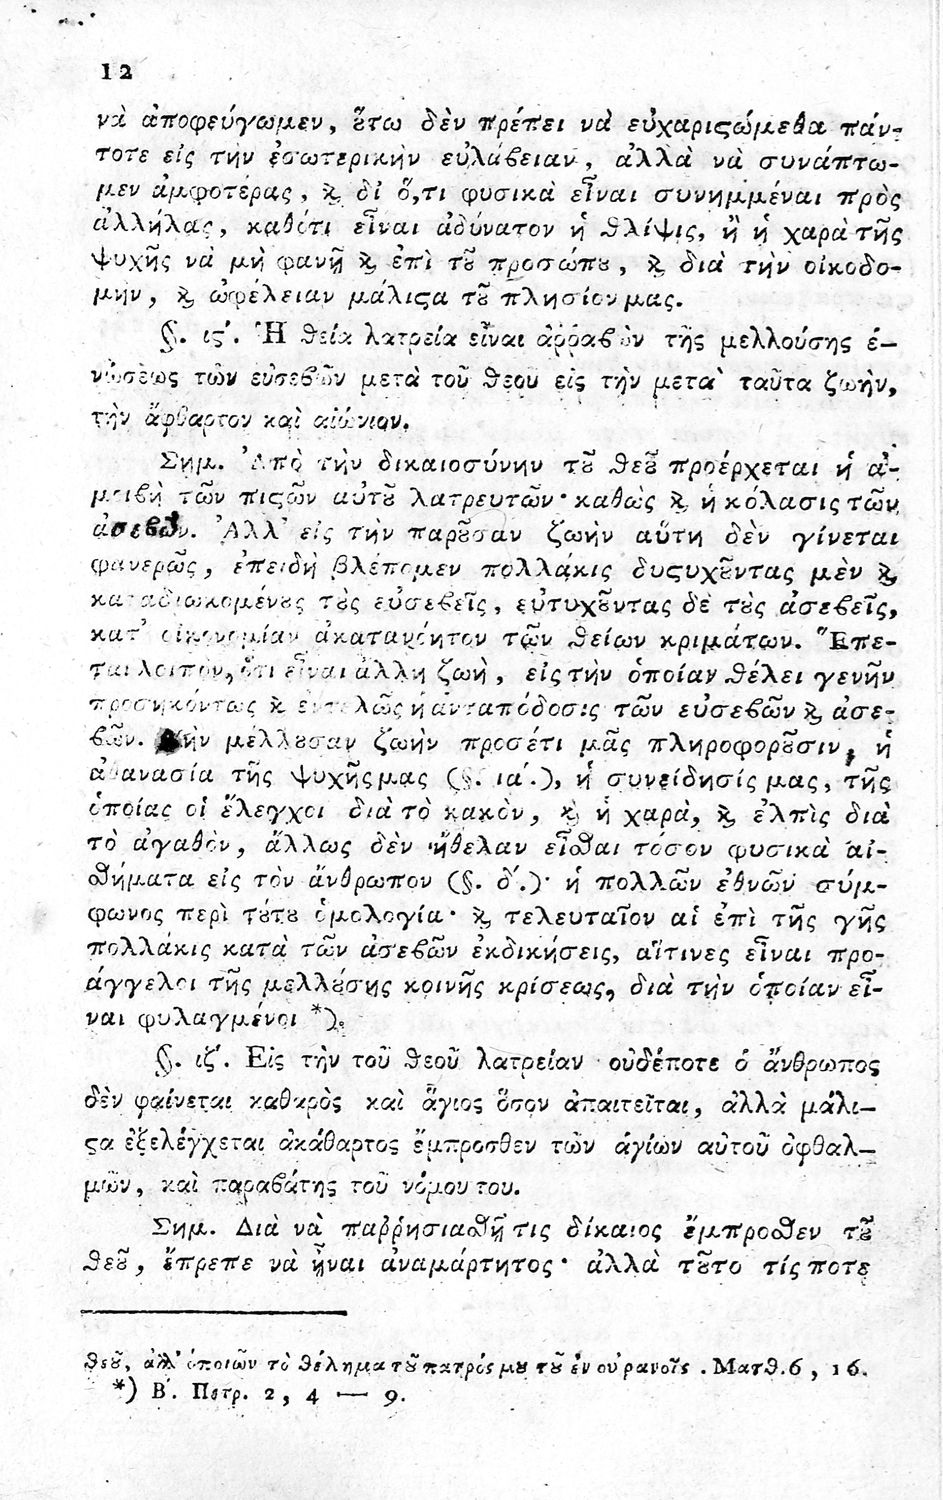 12
νὰ ἀποφεύγωμεν, ȣ̔́τω δὲν πρέπει νὰ εὐχαριϛώμεθα πάν-
τοτε εἰς τὴν ἐσωτερικὴν εὐλάβειαν, ἀλλὰ νὰ συνάπτω-
μεν ἀμφοτέρας, ϗ δι' ὅ,τι φυσικὰ εἶναι συνημμέναι πρὸς
ἀλλήλας, καθότι εἶναι ἀδύνατον ἡ θλίψις, ἢ ἡ χαρὰ τῆς
ψυχῆς νὰ μὴ φανῇ ϗ ἐπὶ τȣ͂ προσώπȣ, ϗ διὰ τὴν οἰκοδο-
μὴν, ϗ ὠφέλειαν μάλιϛα τȣ͂ πλησίον μας.
§. ιϛ'. Ἡ θεία λατρεία εἶναι ἀῤῥαβὼν τῆς μελλούσης ἑ-
νώσεως τῶν εὐσεβῶν μετὰ τοῦ θεοῦ εἰς τὴν μετὰ ταῦτα ζωὴν,
τὴν ἄφθαρτον καὶ αἰώνιον.
Σημ. Ἀπὸ τὴν δικαιοσύνην τȣ͂ θεȣ͂ προέρχεται ἡ ἀ-
μοιβὴ τῶν πιϛῶν αὐτȣ͂ λατρευτῶν· καθὼς ϗ ἡ κόλασις τῶν
ἀσεβῶν. Ἀλλ' εἰς τὴν παρȣ͂σαν ζωὴν αὕτη δὲν γίνεται
φανερῶς, ἐπειδὴ βλέπομεν πολλάκις δυϛυχȣ͂ντας μὲν ϗ
καταδιωκομένȣς τὸς εὐσεβεῖς, εὐτυχȣ͂ντας δὲ τὸς ἀσεβεῖς,
κατ' οἰκονομίαν ἀκατανόητον τῶν θείων κριμάτων. Ἕπε-
ται λοιπὸν, ὅτι εἶναι ἄλλη ζωὴ, εἰς τὴν ὁποίαν θέλει γενῆν
προσηκόντως ϗ ἐντελῶς ἡ ἀνταπόδοσις τῶν εὐσεβῶν ϗ ἀσε-
βῶν. Τὴν μέλλȣσαν ζωὴν προσέτι μᾶς πληροφορȣ͂σιν, ἡ
ἀθανασία τῆς ψυχῆς μας (§. ια'.), ἡ συνείδησίς μας, τῆς
ὁποίας οἱ ἔλεγχοι διὰ τὸ κακὸν, ϗ ἡ χαρὰ, ϗ ἐλπὶς διὰ
τὸ ἀγαθὸν, ἄλλως δὲν ἤθελαν εἶσθαι τόσον φυσικὰ αἰ-
σθήματα εἰς τὸν ἄνθρωπον (§. δ'.)· ἡ πολλῶν ἐθνῶν σύμ-
φωνος περὶ τȣ́τȣ ὁμολογία· ϗ τελευταῖον αἱ ἐπὶ τῆς γῆς
πολλάκις κατὰ τῶν ἀσεβῶν ἐκδικήσεις, αἵτινες εἶναι προ-
άγγελοι τῆς μελλȣ́σης κοινῆς κρίσεως, διὰ τὴν ὁποίαν εἶ-
ναι φυλαγμένοι *).
§. ιζ'. Εἰς τὴν τοῦ θεοῦ λατρείαν οὐδέποτε ὁ ἄνθρωπος
δὲν φαίνεται καθαρὸς καὶ ἅγιος ὅσον ἀπαιτεῖται, ἀλλὰ μάλι-
ϛα ἐξελέγχεται ἀκάθαρτος ἔμπροσθεν τῶν ἁγίων αὐτοῦ ὀφθαλ-
μῶν, καὶ παραβάτης τοῦ νόμου του.
Σημ. Διὰ νὰ παῤῥησιασθῇ τις δίκαιος ἔμπροσθεν τȣ͂
θεȣ͂, ἔπρεπε νὰ ἦναι ἀναμάρτητος· ἀλλὰ τȣ͂το τίς ποτε
θεȣ͂, ἀλλ' ὁποιῶν τὸ θέλημα τȣ͂ πατρός μȣ τȣ͂ ἐν οὐρανοῖς. Ματθ. 6, 16.
*) Β'. Πετρ. 2, 4 — 9.